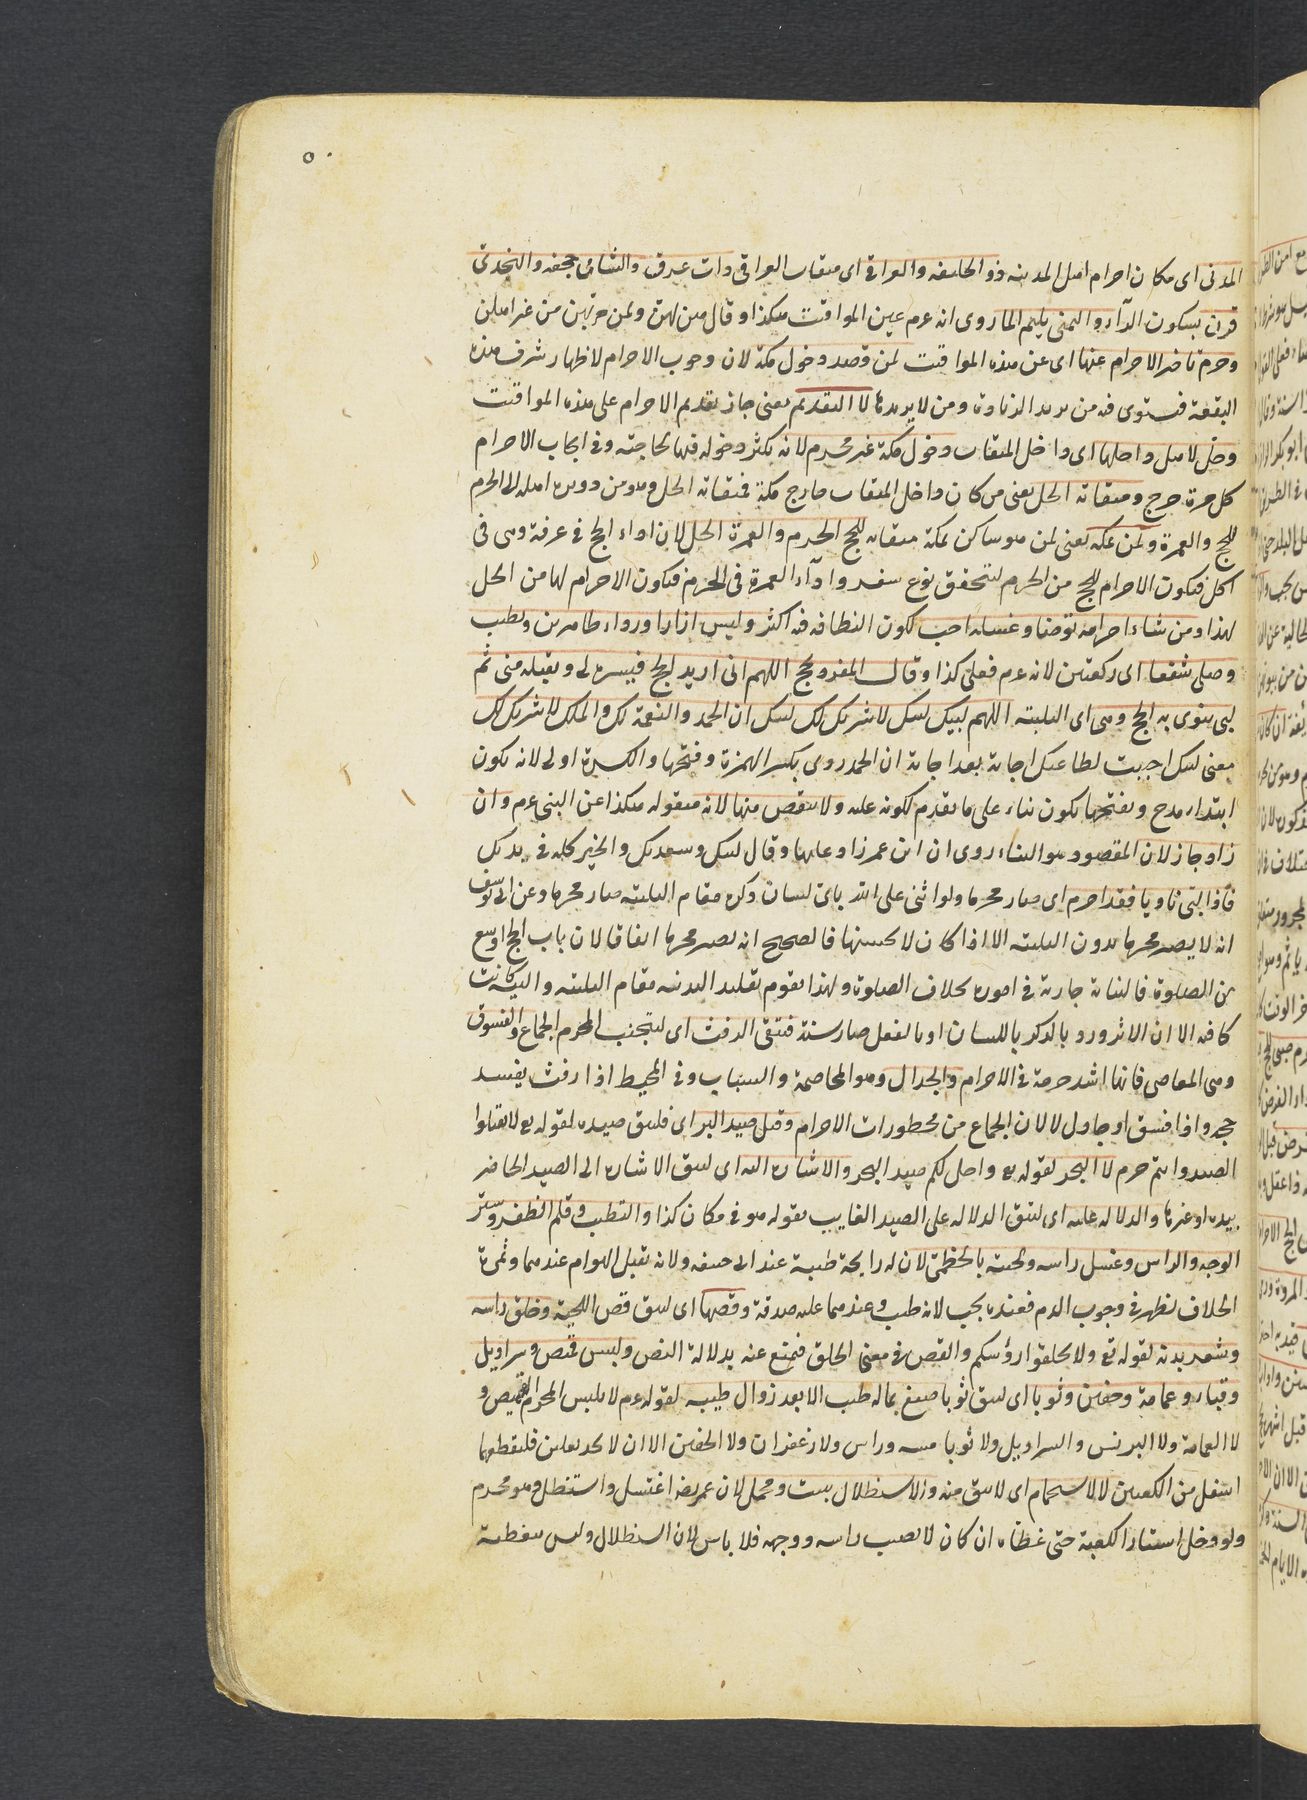 ٥٠
المدنى اى مكان احرام اهل المدينه ذو الحليفه والعراقى اى ميقات العراقى ذات عرق والشامى جحفه والنجدى
قرن بسكون الرآء واليمنى يلملم لما روى انه عم عين المواقيت هكذا وقال هن لهن ولمن مر بهن من غير اهلهن
وحرم تاخير الاحرام عنها اى عن هذه المواقيت لمن قصد دخول مكة لان وجوب الاحرام لاظهار شرف هذه
البقعة فيستوى فيه من يريد الزيارة ومن لا يريدها لا التقديم يعنى جاز تقديم الاحرام على هذه المواقيت
وحل لاهل داخلها اى داخل الميقات دخول مكة غير محرم لانه يكثر دخوله فيها لحاجته وفى ايجاب الاحرام
كل مرة حرج وميقاته الحل يعنى من كان داخل الميقات خارج مكة فميقاته الحل وهو من دويرة اهله الى الحرم
للحج والعمرة ولمن بمكه يعنى لمن هو ساكن بمكة ميقاته للحج الحرم والعمرة الحل لان اداء الحج فى عرفة وهى فى
الحل فيكون الاحرام للحج من الحرم ليتحقق نوع سفر واداء العمرة فى الحرم فيكون الاحرام لها من الحل
لهذا ومن شاء احرامه توضا وغسله احب لكون النظافه فيه اكثر ولبس ازارا ورداء طاهرين وتطيب
وصلى شفعا اى ركعتين لانه عم فعل كذا وقال المفرد بحج اللهم انى اريد الحج فيسره لى وتقبله منى ثم
لبى ينوى به الحج وهى اى التلبيه اللهم لبيك لبيك لا شريك لك لبيك ان الحمد والنعمة لك والملك لا شريك لك
معنى لبيك اجبت لطاعتك اجابة بعد اجابة ان الحمد روى بكسر الهمزة وفتحها والكسرة اولى لانه يكون
ابتداء مدح وبفتحها يكون بناء على ما تقدم لكونه علة ولا ينقص منها لانه منقوله هكذا عن النبى عم وان
زاد جاز لان المقصود هو الثناء روى ان ابن عمر زاد عليها وقال لبيك وسعديك والخير كله فى يديك
فاذا لبى ناويا فقد احرم اى صار محرما ولو اثنى على الله باى لسان وذكره مقام التلبيه صار محرما وعن ابى يوسف
انه لا يصير محرما بدون التلبيه الا اذا كان لا يحسنها فالصحيح انه يصير محرما اتفاقا لان باب الحج اوسع
من الصلوة فالنيابة جارية فى اموره بخلاف الصلوة ولهذا يقوم تقليد البدنه مقام التلبيه والنيه كانت
كافيه الا ان الاثر ورد بالذكر باللسان او بالفعل صار سنة فيتقى الرفث اى ليتجنب المحرم الجماع والفسوق
وهى المعاصى فانها اشد حرمة فى الاحرام والجدال وهو المخاصمة والسباب وفى المحيط اذا رفث يفسد
حجه واذا فسق او جادل لا لان الجماع من محظورات الاحرام وقتل صيد البر اى فليتق صيده لقوله تع لا تقتلوا
الصيد وانتم حرم لا البحر لقوله تع واحل لكم صيد البحر والاشارة اليه اى ليتق الاشارة الى الصيد الحاضر
بيده او غيرها والدلالة عليه اى ليتق الدلاله على الصيد الغايب بقوله هو فى مكان كذا والتطيب وقلم الظفر وستر
الوجه والراس وغسل راسه ولحيته بالخطمى لان له رايحة طيبة عند ابى حنيفه ولانه يقتل الهوام عندهما وثمرة
الخلاف تظهر فى وجوب الدم فعنده يجب لانه طيب وعندهما عليه صدقة وقصها اى ليتق قص اللحية وحلق راسه
وشعر بدنه لقوله تع ولا تحلقوا رؤسكم والقص فى معنى الحلق فيمنع عنه بدلالة النص ولبس قميص وسراويل
وقباء وعمامة وخفين وثوبا اى ليتق ثوبا صبغ بماله طيب الا بعد زوال طيبه لقوله عم لا يلبس المحرم القميص و
لا العمامة ولا البرنس والسراويل ولا ثوبا مسه ورس ولا زعفران ولا الخفين الا ان لا يجد نعلين فليقطعهما
اسفل من الكعبين لا الاستحمام اى لا يتق منه والاستظلال ببيت ومحمل لان عمر رضه اغتسل واستظل وهو محرم
ولو دخل استار الكعبة حتى غطاه ان كان لا يصيب راسه ووجهه فلا باس لان استظلال وليس بتغطية